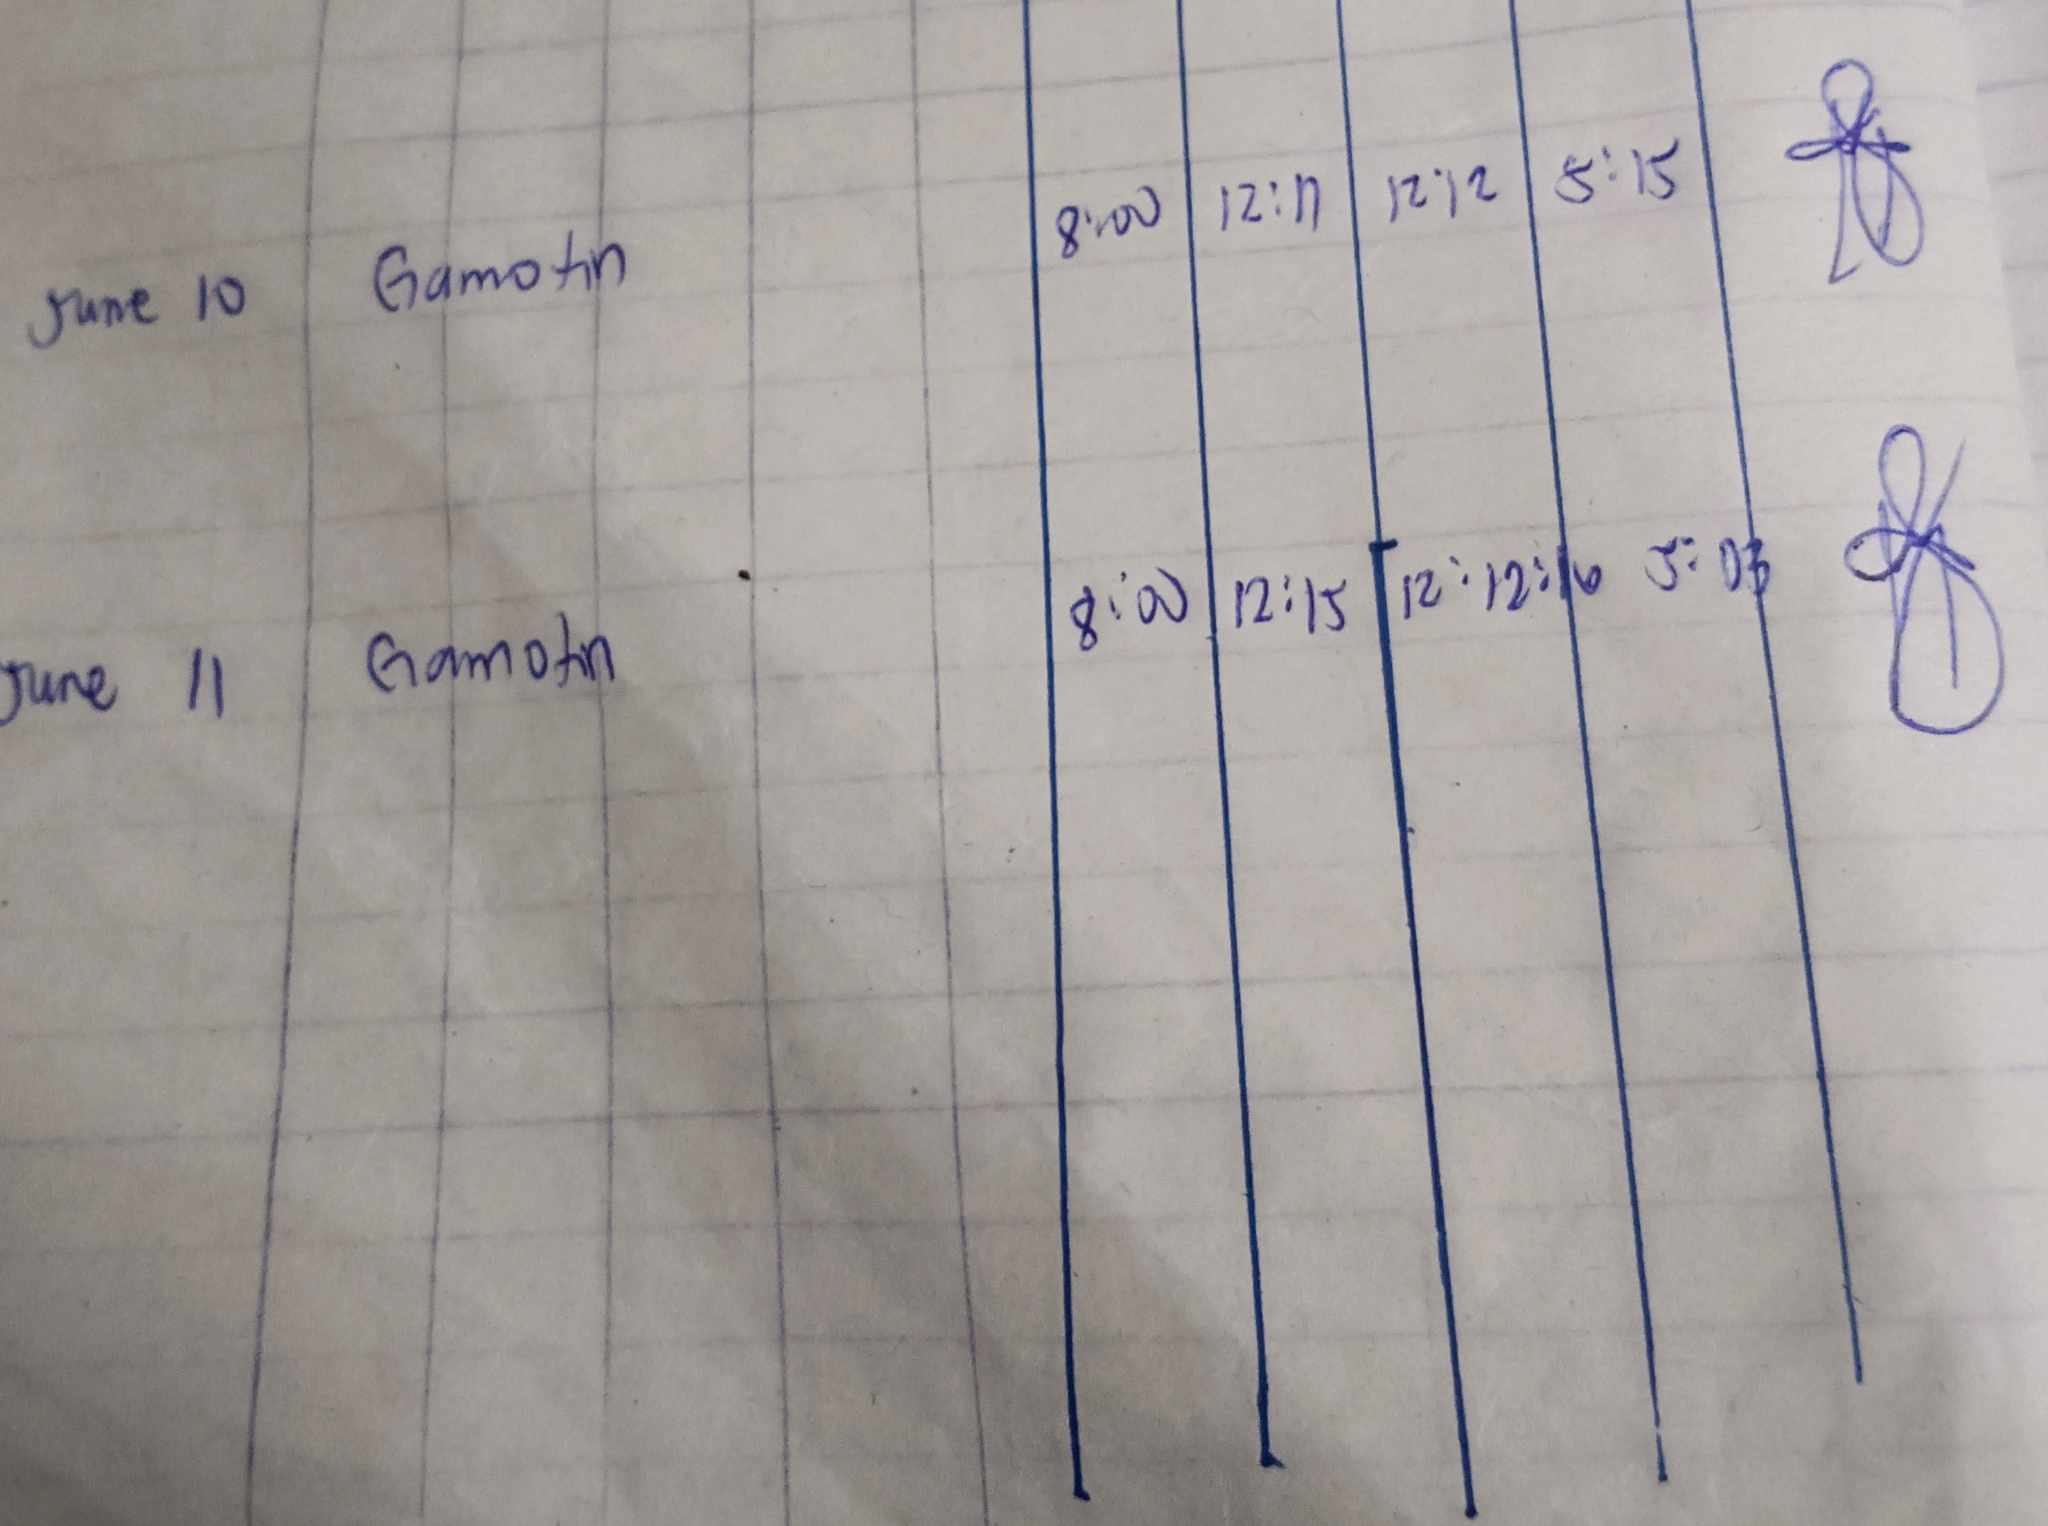 June 10 Gamotin 8:00 12:11 12:12 5:15
June 11 Gamotin 8:00 12:15 12:12:16 5:03